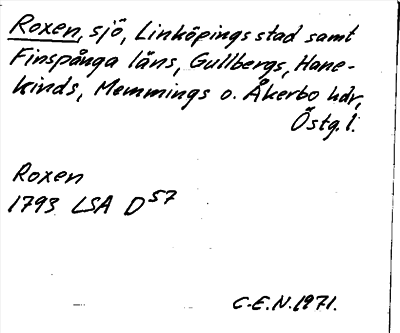 Roxen, sjö, Linköpings stad samt
Finspånga läns, Gullbergs, Hane-
kinds, Memmings o. Åkerbo hdr,
Östg. l.
Roxen
1793 LSA D 57
C.E.N. 1971.